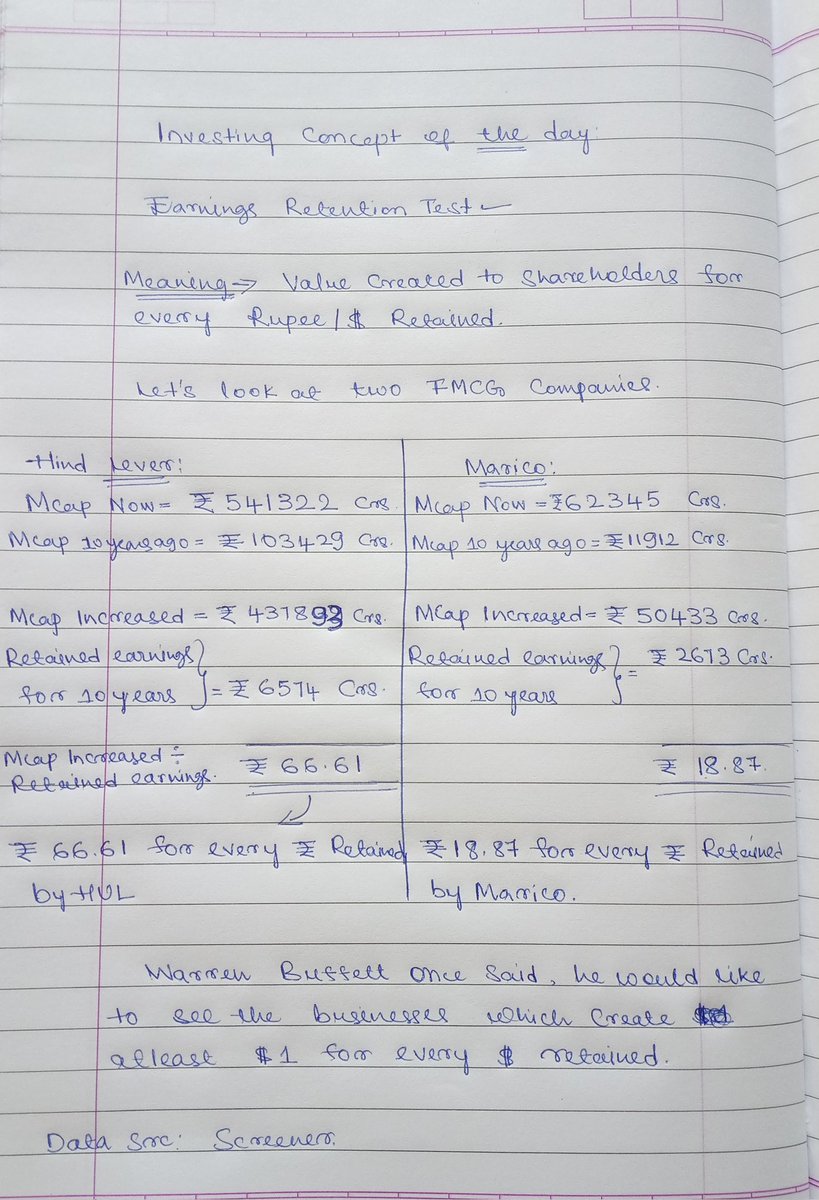 Investing Concept of the day:
Earnings Retention Test
Meaning ⇒ Value Created to Shareholders for
every Rupee / $ Retained.
Let's look at two FMCG Companies.
Hind Lever:
Mcap Now = ₹ 541322 Crs.
Mcap 10 years ago = ₹ 103429 Crs.
Mcap Increased = ₹ 437893 Crs.
Retained earnings
for 10 years } = ₹ 6574 Crs.
Mcap Increased ÷
Retained earnings. ₹ 66.61
₹ 66.61 for every ₹ Retained
by HUL
Marico:
Mcap Now = ₹62345 Crs.
Mcap 10 years ago = ₹11912 Crs.
MCap Increased = ₹ 50433 Crs.
Retained earnings } = ₹ 2673 Crs.
for 10 years
₹ 18.87.
₹18.87 for every ₹ Retained
by Marico.
Warren Buffett once said, he would like
to see the businesses which Create
atleast $1 for every $ retained.
Data Src: Screener.